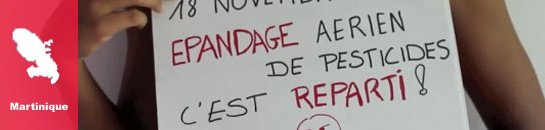 18 NOVEMB
EPANDAGE AERIEN
DE PESTICIDES
C'EST REPARTI !
Martinique